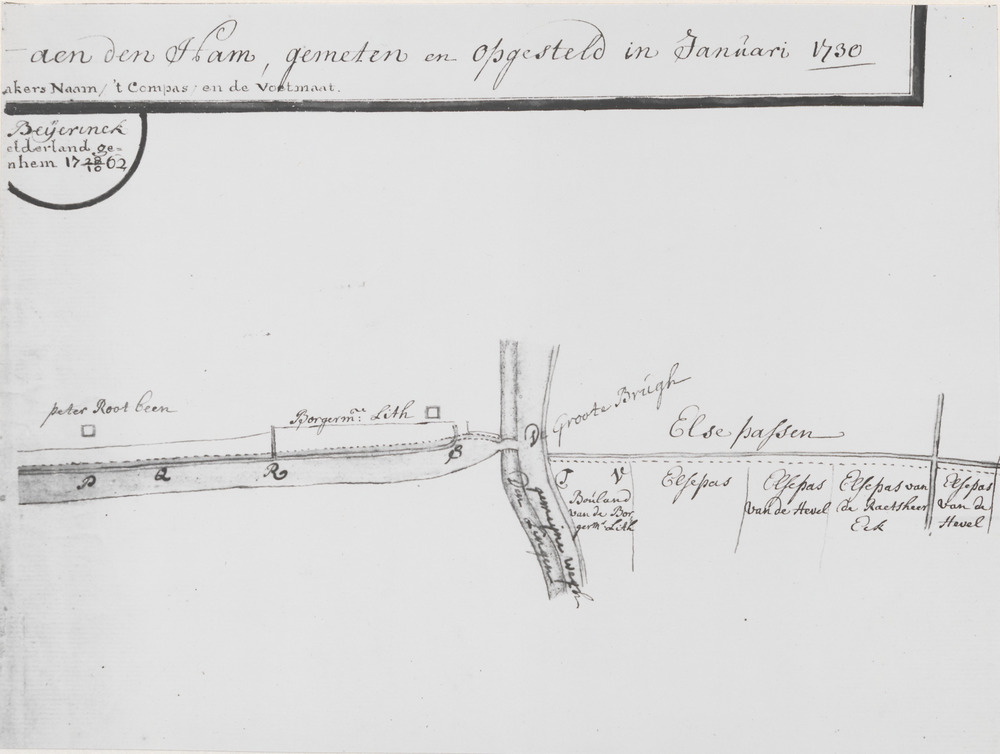 aen den Ham, gemeten en opgesteld in Januari 1730
akers Naam, 't Compas, en de Voetmaat.
Beijerinck
elderland ge=
nhem 17 28/10 62
peter Root been
Borgermr. Lith
Groote Brugh
Else passen
P Q R S T V
Bouland
van de Bor
germr. Lith
Elsepas
Elsepas
van de Hevel
Elsepas van
de Raetsheer
Eck
Elsepas
van de
Hevel
gemeijne wegh